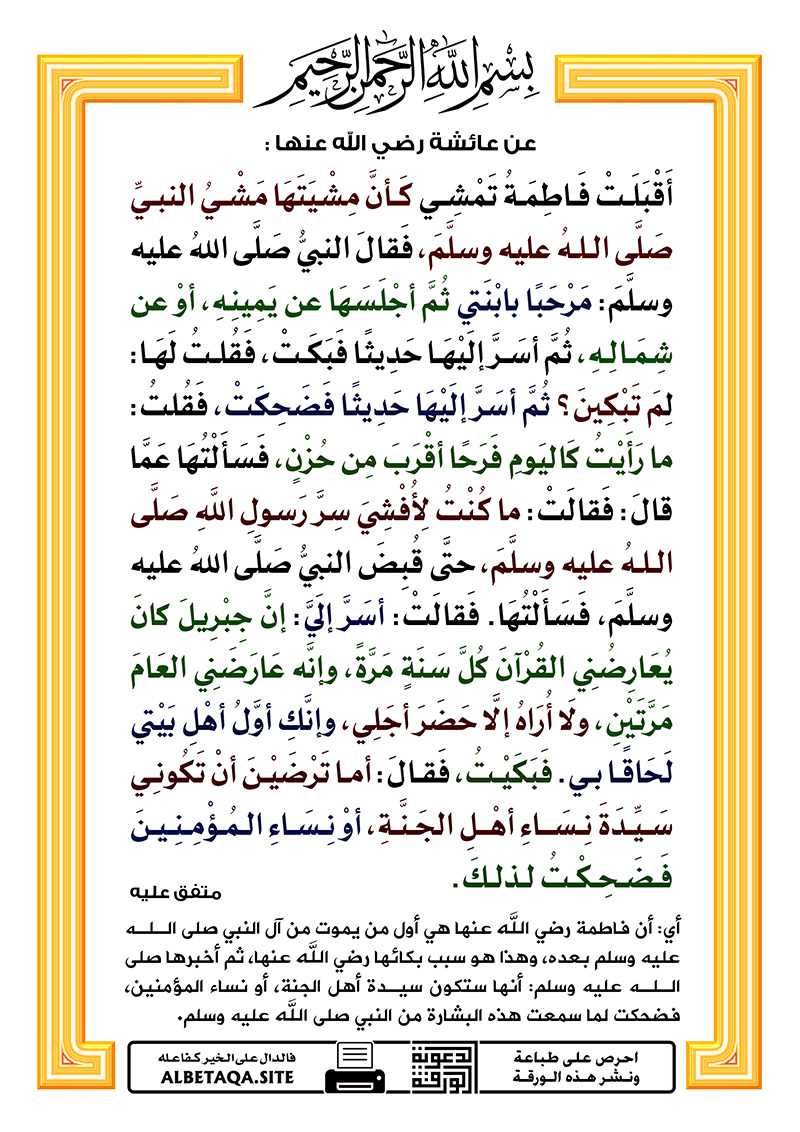 بِسْمِ اللَّهِ الرَّحْمَنِ الرَّحِيمِ
عن عائشة رضي الله عنها :
أَقْبَلَتْ فَاطِمَةُ تَمْشِي كَأنَّ مِشْيَتَهَا مَشْيُ النبيِّ
صَلَّى اللهُ عليه وسلَّمَ، فَقالَ النبيُّ صَلَّى اللهُ عليه
وسلَّمَ: مَرْحَبًا بابْنَتي ثُمَّ أجْلَسَهَا عن يَمِينِهِ، أوْ عن
شِمَالِهِ، ثُمَّ أسَرَّ إلَيْهَا حَدِيثًا فَبَكَتْ، فَقُلتُ لَهَا:
لِمَ تَبْكِينَ؟ ثُمَّ أسَرَّ إلَيْهَا حَدِيثًا فَضَحِكَتْ، فَقُلتُ:
ما رَأَيْتُ كَاليَومِ فَرَحًا أقْرَبَ مِن حُزْنٍ، فَسَأَلْتُهَا عَمَّا
قالَ: فَقالَتْ: ما كُنْتُ لِأُفْشِيَ سِرَّ رَسولِ اللَّهِ صَلَّى
اللهُ عليه وسلَّمَ، حتَّى قُبِضَ النبيُّ صَلَّى اللهُ عليه
وسلَّمَ، فَسَأَلْتُهَا. فَقالَتْ: أسَرَّ إلَيَّ: إنَّ جِبْرِيلَ كانَ
يُعَارِضُنِي القُرْآنَ كُلَّ سَنَةٍ مَرَّةً، وإنَّه عَارَضَنِي العَامَ
مَرَّتَيْنِ، ولَا أُرَاهُ إلَّا حَضَرَ أجَلِي، وإنَّكِ أوَّلُ أهْلِ بَيْتي
لَحَاقًا بي. فَبَكَيْتُ، فَقالَ: أما تَرْضَيْنَ أنْ تَكُونِي
سَيِّدَةَ نِسَاءِ أهْلِ الجَنَّةِ، أوْ نِسَاءِ المُؤْمِنِينَ
فَضَحِكْتُ لذلكَ.
متفق عليه
أي: أن فاطمة رضي اللَّه عنها هي أول من يموت من آل النبي صلى اللـه
عليه وسلم بعده، وهذا هو سبب بكائها رضي اللَّه عنها، ثم أخبرها صلى
اللـه عليه وسلم: أنها ستكون سيدة أهل الجنة، أو نساء المؤمنين،
فضحكت لما سمعت هذه البشارة من النبي صلى اللَّه عليه وسلم.
احرص على طباعة
ونشر هذه الورقة
الورقة
الدعوية
فالدال على الخير كفاعله
ALBETAQA.SITE